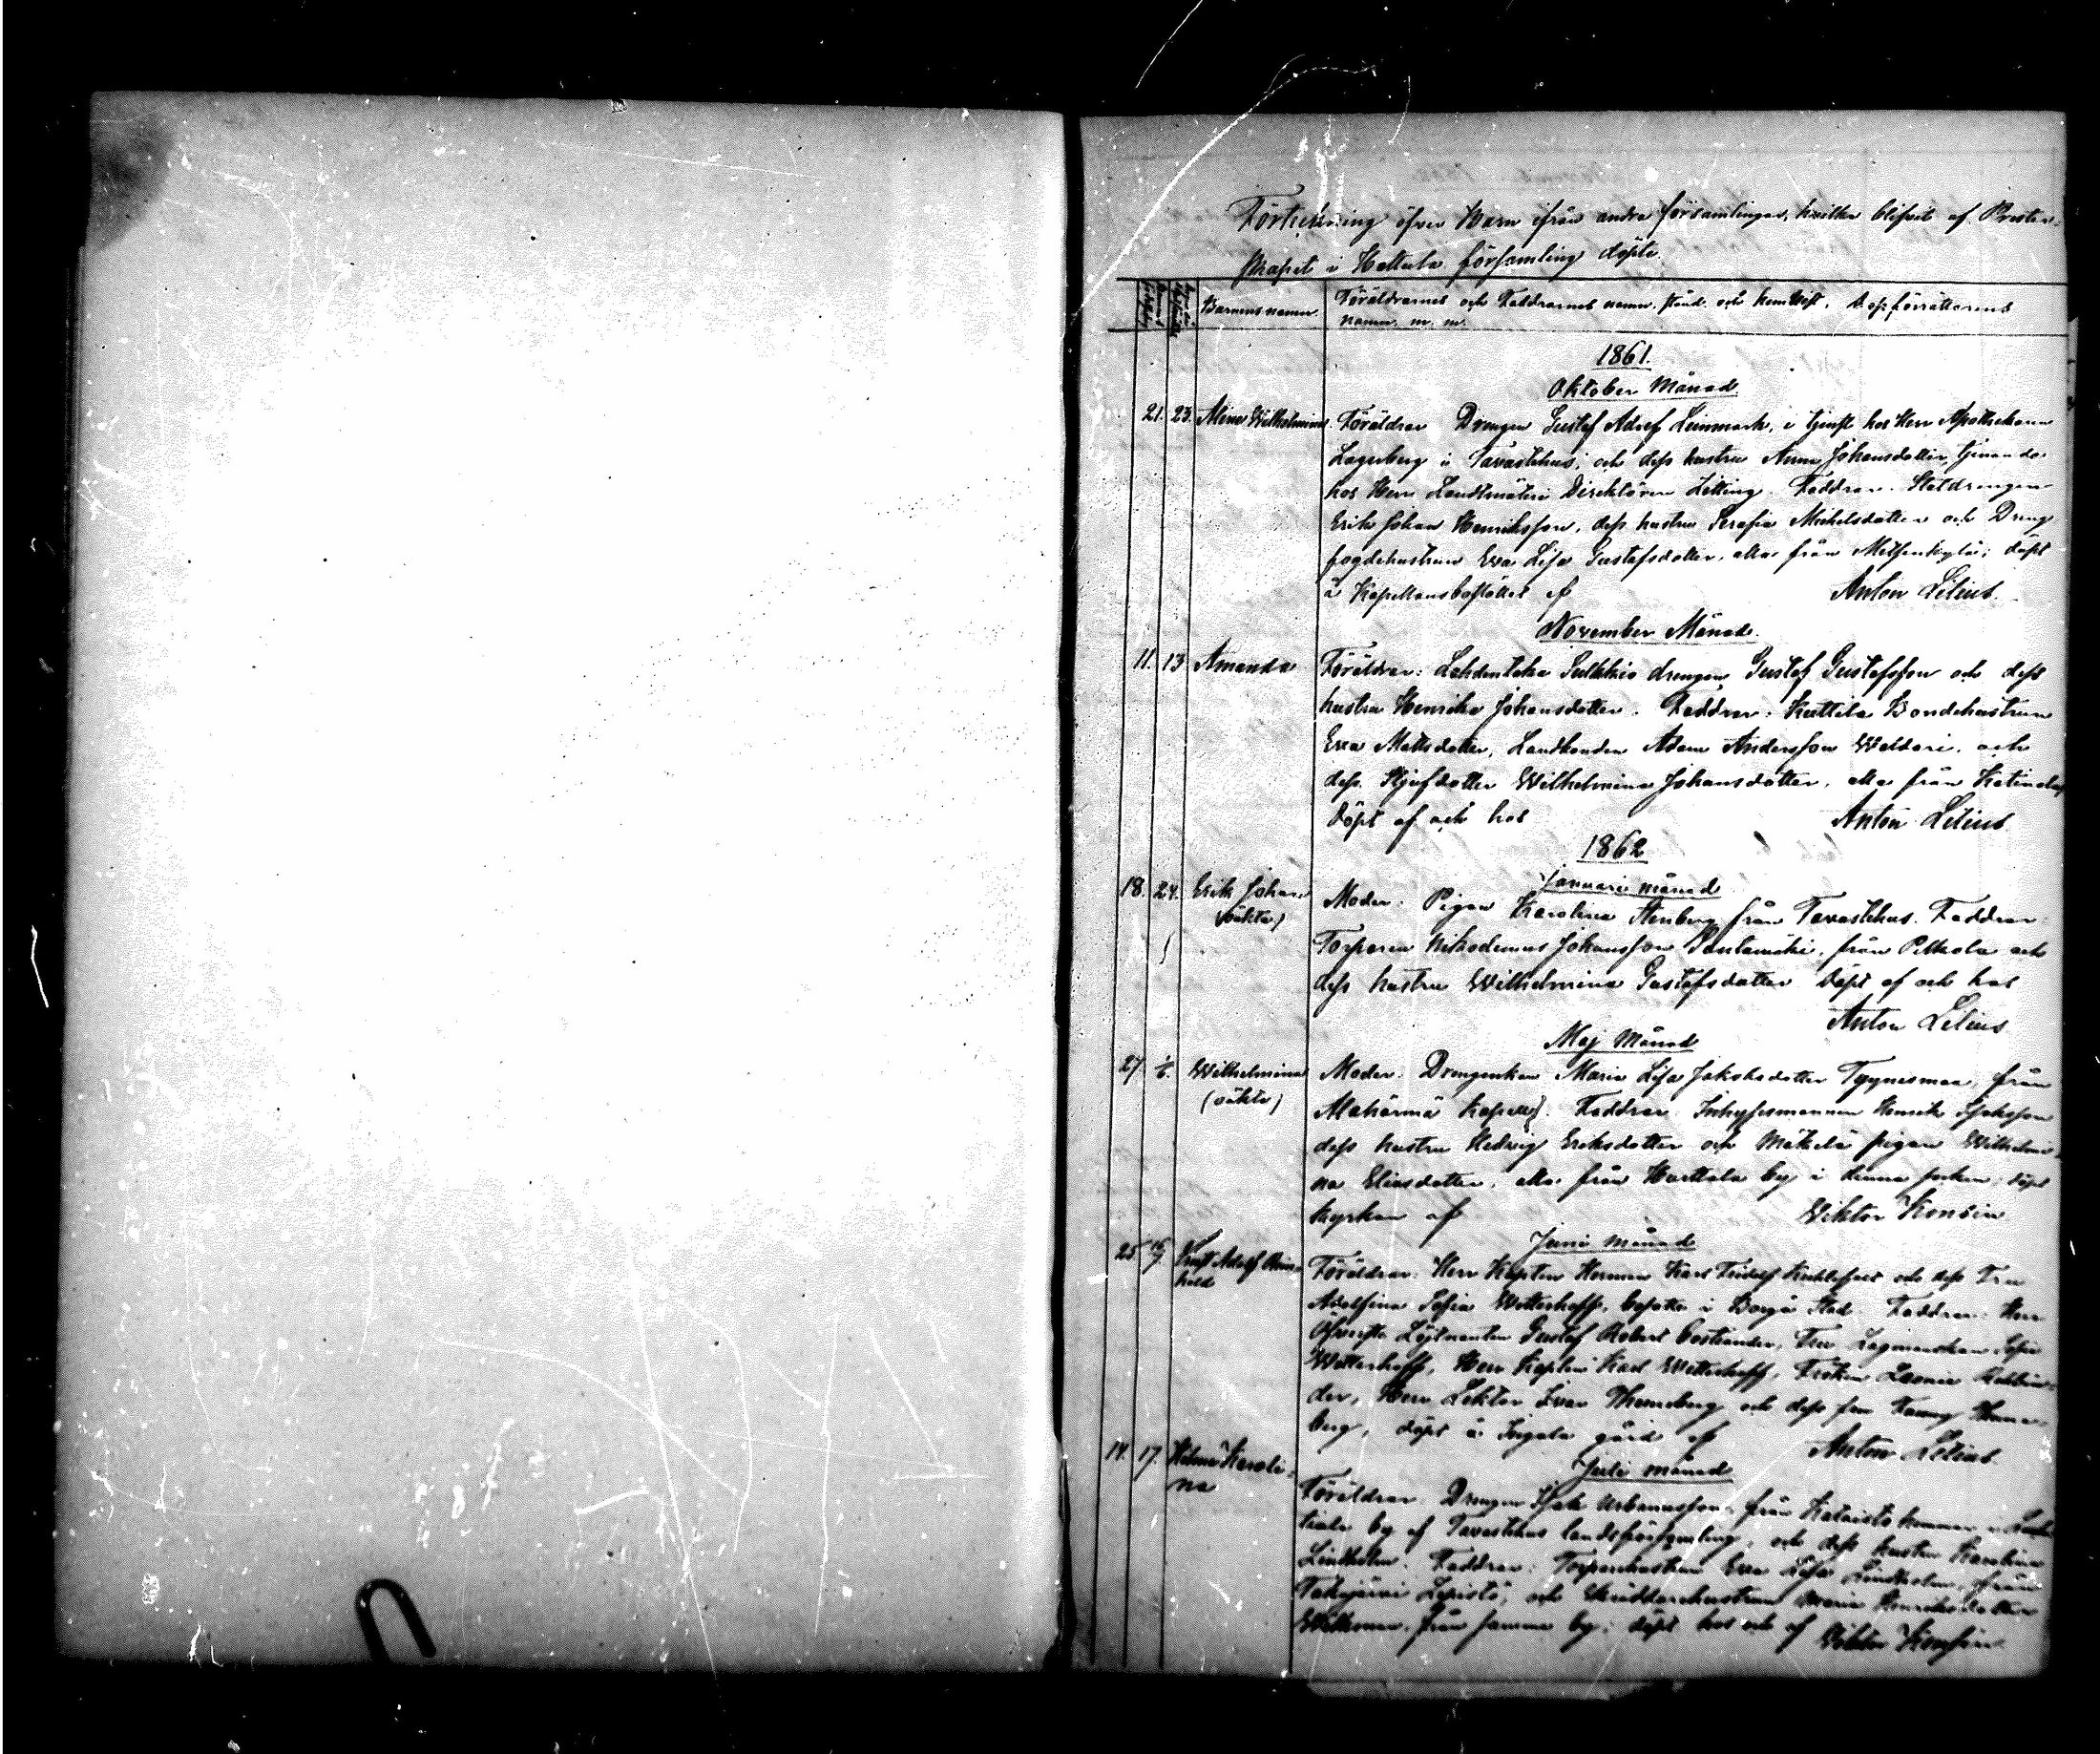 Förteckning öfver Barn ifrån andra församlingar, hvilka blifvit af Prester-
skapet i Hattula församling döpte.
Barnens namn.
Föräldrarnes och Faddrarnes namn, stånd och hemvist. Dopförrättarens
namn. m. m.
1861.
Oktober Månad.
21. 23. Wilhelmina. Föräldrar Drengen Gustaf Adolf Leinmark, i tjenst hos Herr Apothekaren
Lagerberg i Tavastehus, och dess hustru Anna Johansdotter, tjenande
hos Herr Landtmäteri Direktören Faddrar. Statdrengen
Erik Johan Henriksson, dess hustru Serafia Michelsdotter och Dreng
fogdehustrun Eva Lisa Gustafsdotter, alla från Metsenkylä; döpt
å Kapellansbostället af Anton Lilius.
November Månad.
11. 13 Amanda Föräldrar: drengen Gustaf Gustafsson och dess
hustru Henrika Johansdotter. Faddrar: Kuttila Bondehustrun
Eva Mattsdotter, Landbonden Adam Andersson och
dess Styfdotter Wilhelmina Johansdotter, alla från Katinala,
döpt af och hos Anton Lilius
1862
Januari månad
18. 24. Erik Johan
(oäkta)
Moder: Pigan Karolina Stenberg från Tavastehus. Faddrar
Torparen Nikodemus Johansson från Pelkola och
dess hustru Wilhelmina Gustafsdotter Döpt af och hos
Anton Lilius
Maj Månad
27 1/6. Wilhelmina
(oäkta)
Moder: Drengenkan Maria Lisa Jakobsdotter från
Alahärmä Kapell. Faddrar Inhysesmannen Henrik
dess hustru Hedvig Eriksdotter och Mäkelä pigan Wilhelmi-
na Eliasdotter, alla från Hurttala by i denna socken; döpt
kyrkan af Viktor Konsin
Juni månad
25 Ernst Adolf Rein-
hold
Föräldrar: Herr Kapten Herman Karl och dess Fru
Adolfina Sofia Wetterhoff, bosatte i Borgå Stad. Faddrar: Herr
Öfverste Löjtnanten Gustaf Robert Costiander, Fru Lagmanskan Sofia
Wetterhoff, Herr Kapten Karl Wetterhoff, Fröken
der, Herr Lektor och dess fru Fanny
berg, döpt å Ingala gård af Anton Lilius
Juli månad
14. 17. Karoli-
na
Föräldrar. Drengen Isak Urbanusson, från hemman i
by af Tavastehus landsförsamling, och dess hustru Karolina
Lindholm. Faddrar: Torparehustrun Eva Lisa Lindholm, från
Takajärvi och Skräddarehustrun Maria Henriksdotter
från samma by; döpt hos och af Viktor Konsin